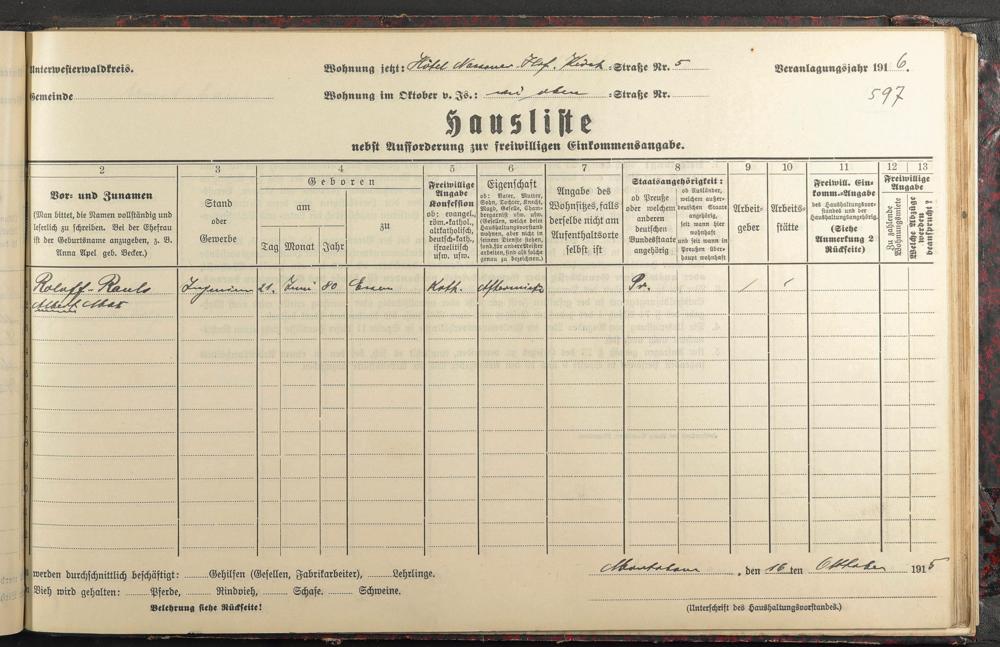 Unterwesterwaldkreis.
Wohnung jetzt: Hôtel Nassauer Hof. Kirch-Straße Nr. 5
Veranlagungsjahr 1916.
Gemeinde
Wohnung im Oktober v. Js.: wie oben -Straße Nr.
597
Hausliste
nebst Aufforderung zur freiwilligen Einkommensangabe.
2 3 4 5 6 7 8 9 10 11 12 13
Vor- und Zunamen
(Man bittet, die Namen vollständig und
leserlich zu schreiben. Bei der Ehefrau
ist der Geburtsname anzugeben, z. B.
Anna Apel geb. Becker.)
Stand
oder
Gewerbe
Geboren
am
zu
Tag Monat Jahr
Freiwillige
Angabe
Konfession
ob: evangel.,
röm.-kathol.,
altkatholisch,
deutsch-kath.,
israelitisch
usw. usw.
Eigenschaft
ob: Vater, Mutter,
Sohn, Tochter, Knecht,
Magd, Geselle, Cham-
bregarnist usw. usw.
(Gesellen, welche beim
Haushaltungsvorstand
wohnen, aber nicht in
seinem Dienste stehen,
sond. für andere Meister
arbeiten, sind als solche
genau zu bezeichnen.)
Angabe des
Wohnsitzes, falls
derselbe nicht am
Aufenthaltsorte
selbst ist
Staatsangehörigkeit:
ob Preuße
oder welchem
anderen
deutschen
Bundesstaate
angehörig
ob Ausländer,
welchem außer-
deutschen Staate
angehörig,
seit wann hier
wohnhaft
und seit wann in
Preußen über-
haupt wohnhaft
Arbeit-
geber
Arbeits-
stätte
Freiwill. Ein-
komm.-Angabe
des Haushaltungsvor-
standes und der
Haushaltungsangehörig.
(Siehe
Anmerkung 2
Rückseite)
Freiwillige
Angabe
Zu zahlende
Wohnungsmiete
Welche Abzüge
werden
beansprucht?
Roloff-Rauls Ingenieur 21. Juni 80 Essen Kath. Aftermieter Pr. / /
Albert Max
werden durchschnittlich beschäftigt: Gehilfen (Gesellen, Fabrikarbeiter), Lehrlinge.
Vieh wird gehalten: Pferde, Rindvieh, Schafe. Schweine.
Belehrung siehe Rückseite!
Montabaur, den 16 ten Oktober 1915
(Unterschrift des Haushaltungsvorstandes.)